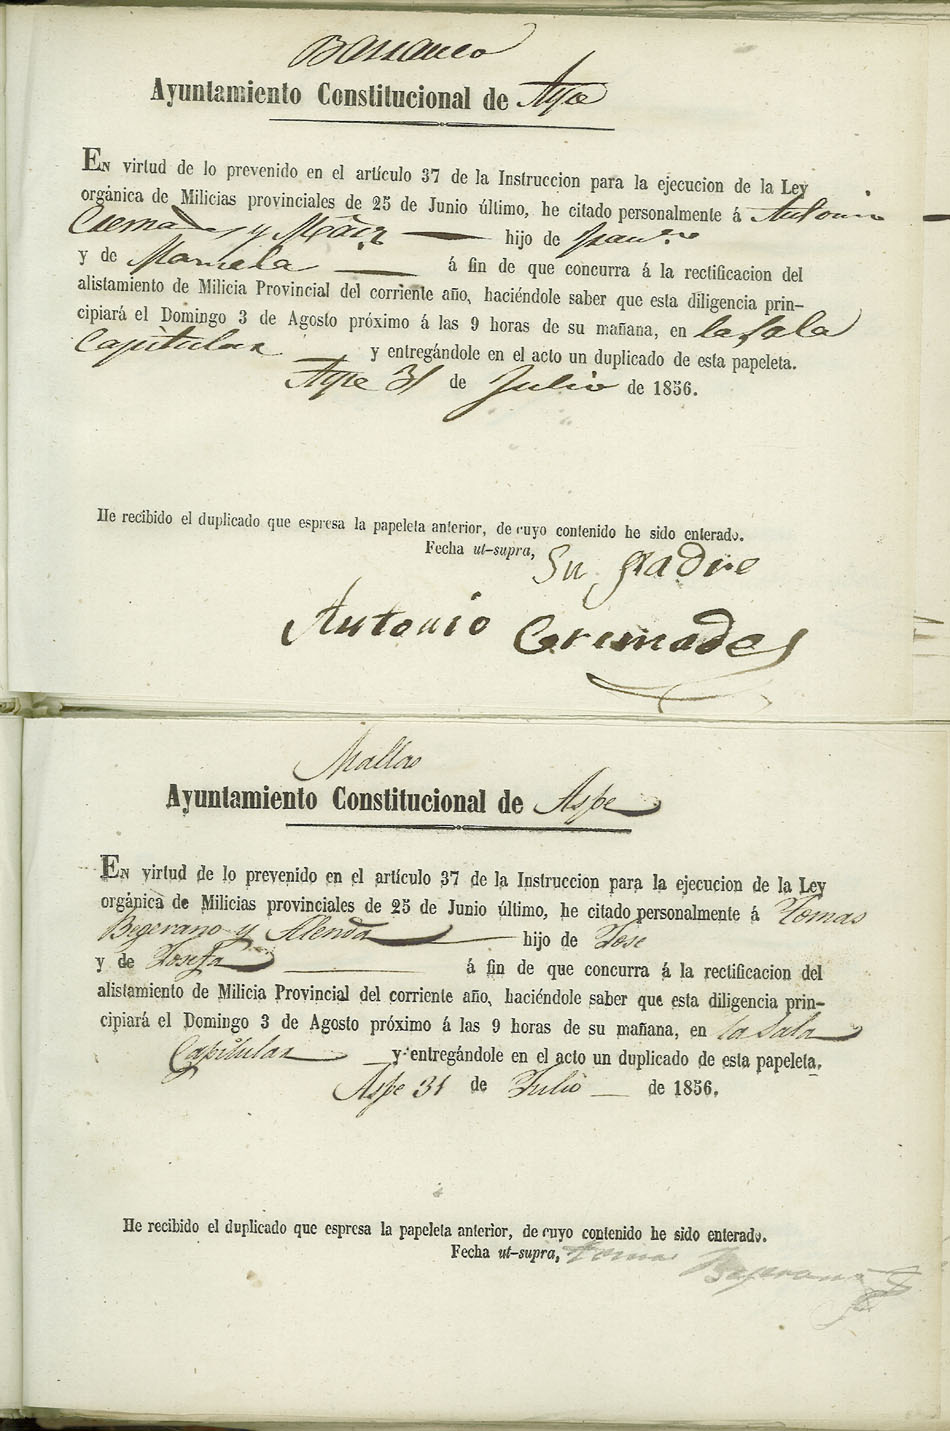 Barranco
Ayuntamiento Constitucional de Aspe
EN virtud de lo prevenido en el artículo 37 de la Instruccion para la ejecucion de la Ley
orgánica de Milicias provinciales de 25 de Junio último, he citado personalmente á Antonio
Cremades y hijo de
y de Manuela á fin de que concurra á la rectificacion del
alistamiento de Milicia Provincial del corriente año, haciéndole saber que esta diligencia prin-
cipiará el Domingo 3 de Agosto próximo á las 9 horas de su mañana, en la sala
Capitular y entregándole en el acto un duplicado de esta papeleta.
Aspe 31 de Julio de 1856.
He recibido el duplicado que espresa la papeleta anterior, de cuyo contenido he sido enterado.
Fecha ut-supra, Su padre
Antonio Cremades
Mallas
Ayuntamiento Constitucional de Aspe
EN virtud de lo prevenido en el artículo 37 de la Instruccion para la ejecucion de la Ley
orgánica de Milicias provinciales de 25 de Junio último, he citado personalmente á Tomas
Begerano y Alenda hijo de Jose
y de Josefa á fin de que concurra á la rectificacion del
alistamiento de Milicia Provincial del corriente año, haciéndole saber que esta diligencia prin-
cipiará el Domingo 3 de Agosto próximo á las 9 horas de su mañana, en la Sala
Capitular y entregándole en el acto un duplicado de esta papeleta.
Aspe 31 de Julio de 1856.
He recibido el duplicado que espresa la papeleta anterior, de cuyo contenido he sido enterado.
Fecha ut-supra, tomas Begerano